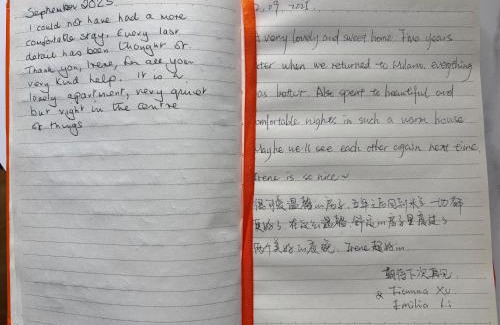 September 2025
I could not have had a more
comfortable stay. Every last
detail has been thought of
Thank you, Irene, for all your
very kind help. It is a
lovely apartment, very quiet
but right in the centre
of things
2.09.2025.
A very lovely and sweet home. Five years
later when we returned to Milano, everything
was better. Also spent to beautiful and
comfortable nights in such a warm house
Maybe we'll see each other again next time.
Irene is so nice~
很可爱温馨的房子,五年之后回到米兰一切都
更好了 在这么温馨,舒适的房子里度过了
两个美好的夜晚, Irene超好的
期待下次再见
& Xu
Emilia Li